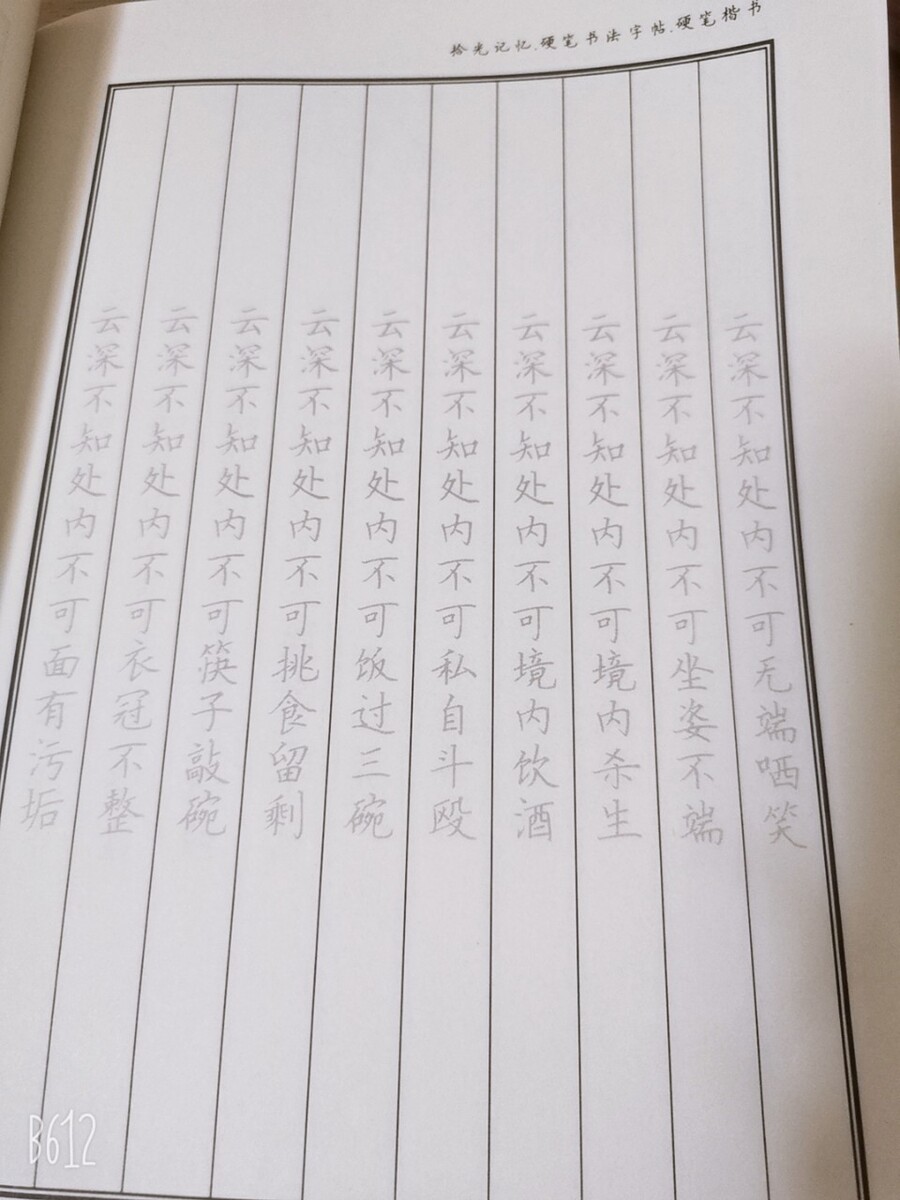 拾光记忆.硬笔书法字帖.硬笔楷书
云深不知处内不可无端哂笑
云深不知处内不可坐姿不端
云深不知处内不可境内杀生
云深不知处内不可境内饮酒
云深不知处内不可私自斗殴
云深不知处内不可饭过三碗
云深不知处内不可挑食留剩
云深不知处内不可筷子敲碗
云深不知处内不可衣冠不整
云深不知处内不可面有污垢
B612